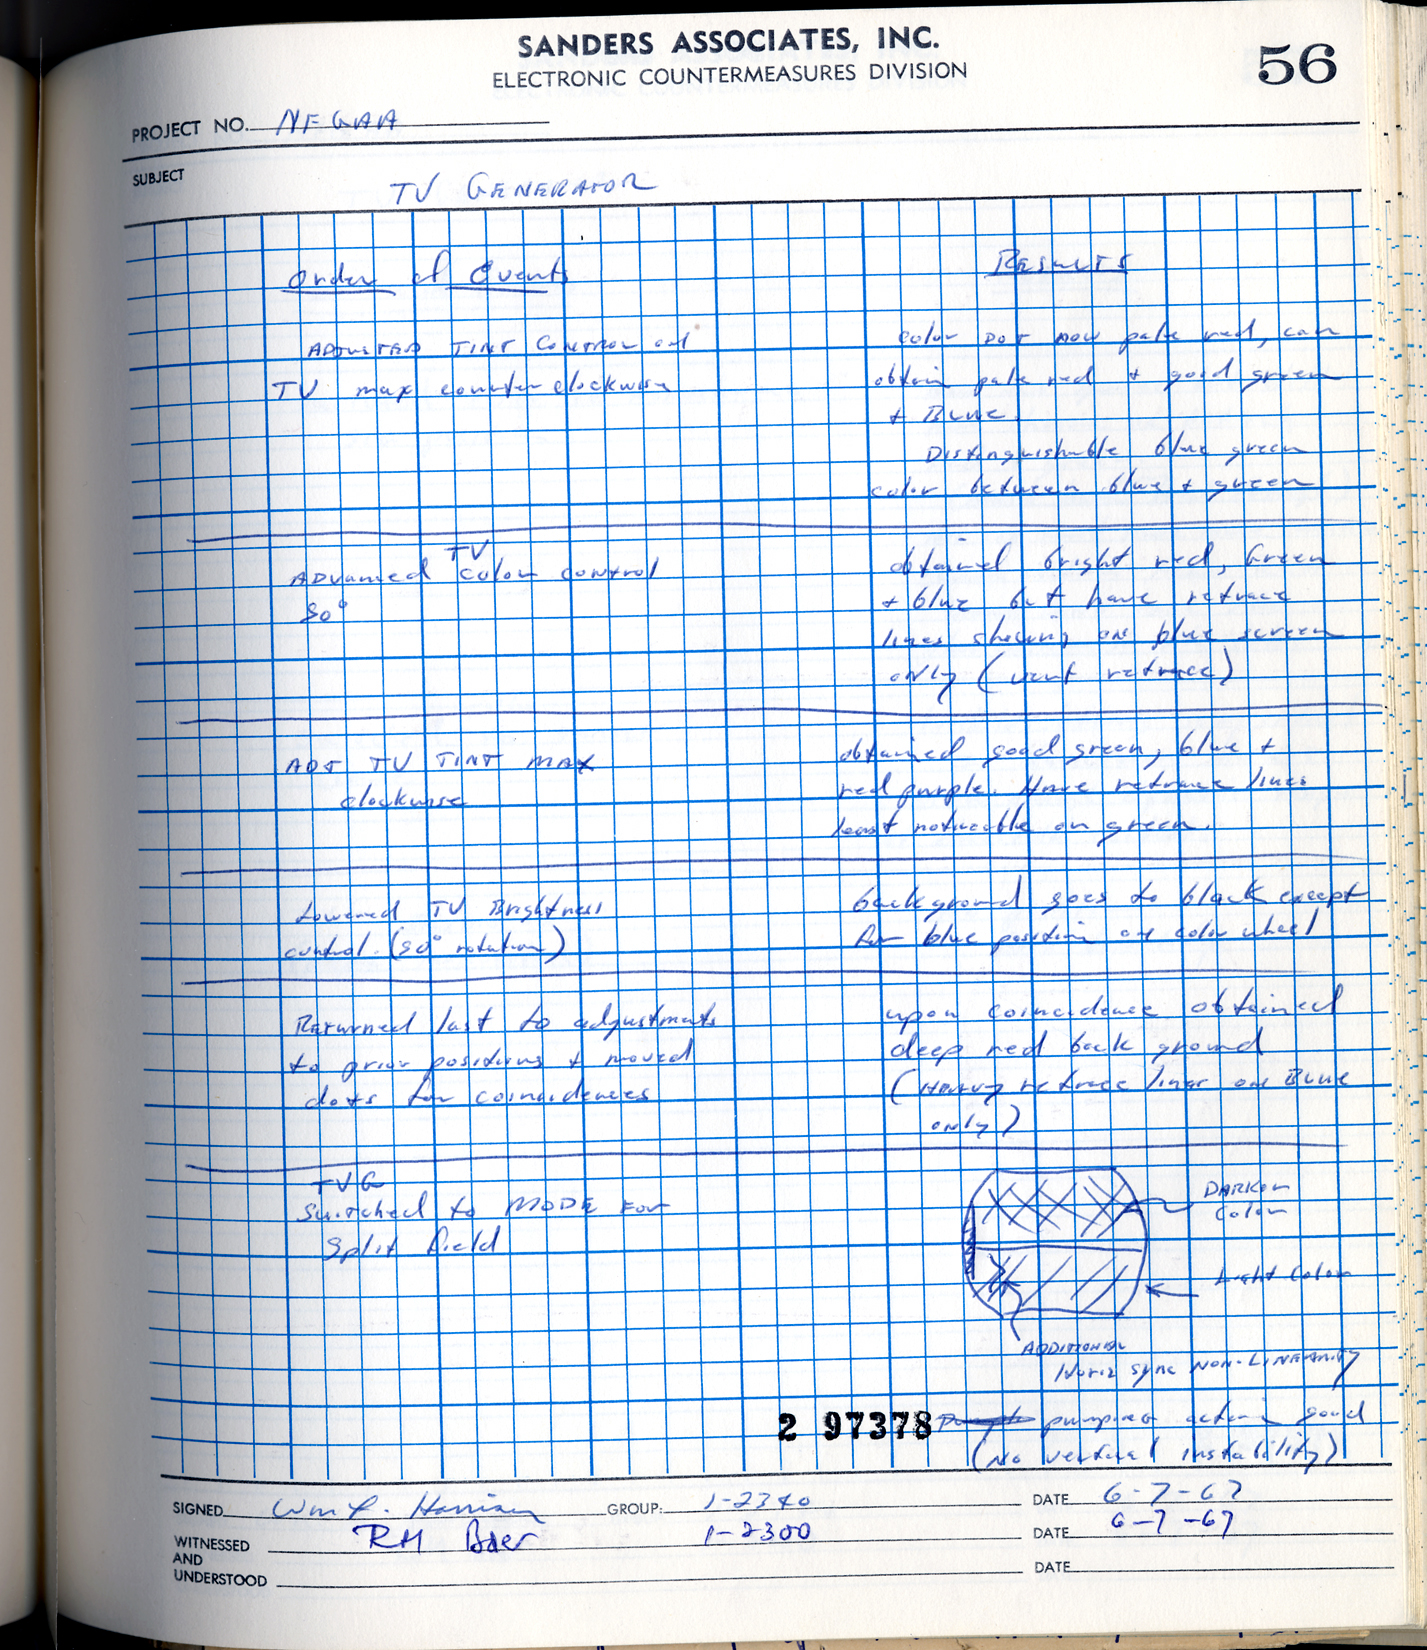 SANDERS ASSOCIATES, INC.
ELECTRONIC COUNTERMEASURES DIVISION
56
PROJECT NO. NFGAA
SUBJECT
TV GENERATOR
Order of Events
RESULTS
ADJUSTED TINT CONTROL on
TV max counter clockwise
color DOT now pale red, can
obtain pale red + good green
+ BLUE.
Distinguishable blue green
color between blue + green
TV
ADvanced color control
80°
obtained bright red, Green
+ blue but have retrace
lines showing on blue screen
only (vert retrace)
ADJ TV TINT MAX
clockwise
obtained good green, blue +
red purple. Have retrace lines
least noticeable on green.
Lowered TV Brightness
control. (80° rotation)
background goes to black except
for blue position on color wheel
Returned last to adjustments
to prior positions + moved
dots for coincidences
upon coincidence obtained
deep red back ground
(Having retrace lines on BLUE
only)
TVG
Switched to MODE FOR
Split field
DARKER
Color
Light Color
ADDITIONAL
Horiz sync NON-LINEARITY
2 97378
pumping action good
(No vertical instability)
SIGNED Wm L. Harrison GROUP: 1-2340 DATE 6-7-67
RH Baer 1-2300 DATE 6-7-67
WITNESSED
AND
UNDERSTOOD
DATE